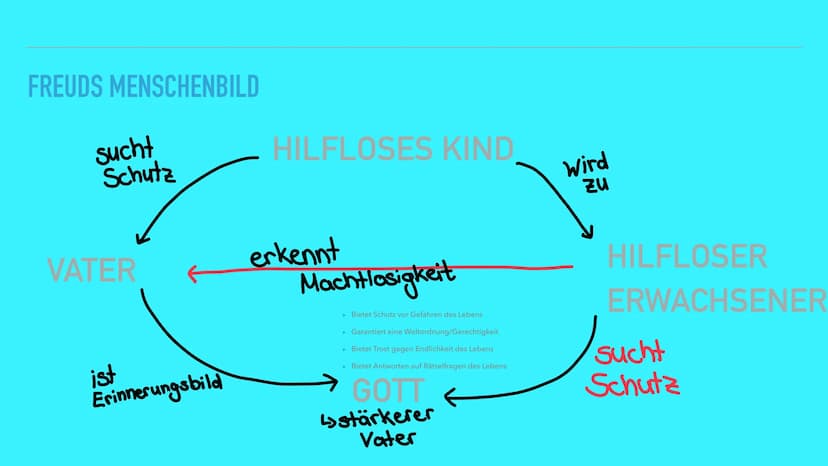 FREUDS MENSCHENBILD
sucht
Schutz
HILFLOSES KIND
wird
zu
VATER
erkennt
Machtlosigkeit
HILFLOSER
ERWACHSENER
• Bietet Schutz vor Gefahren des Lebens
• Garantiert eine Weltordnung/Gerechtigkeit
• Bietet Trost gegen Endlichkeit des Lebens
• Bietet Antworten auf Rätselfragen des Lebens
ist
Erinnerungsbild
GOTT
↳ stärkerer
Vater
sucht
Schutz